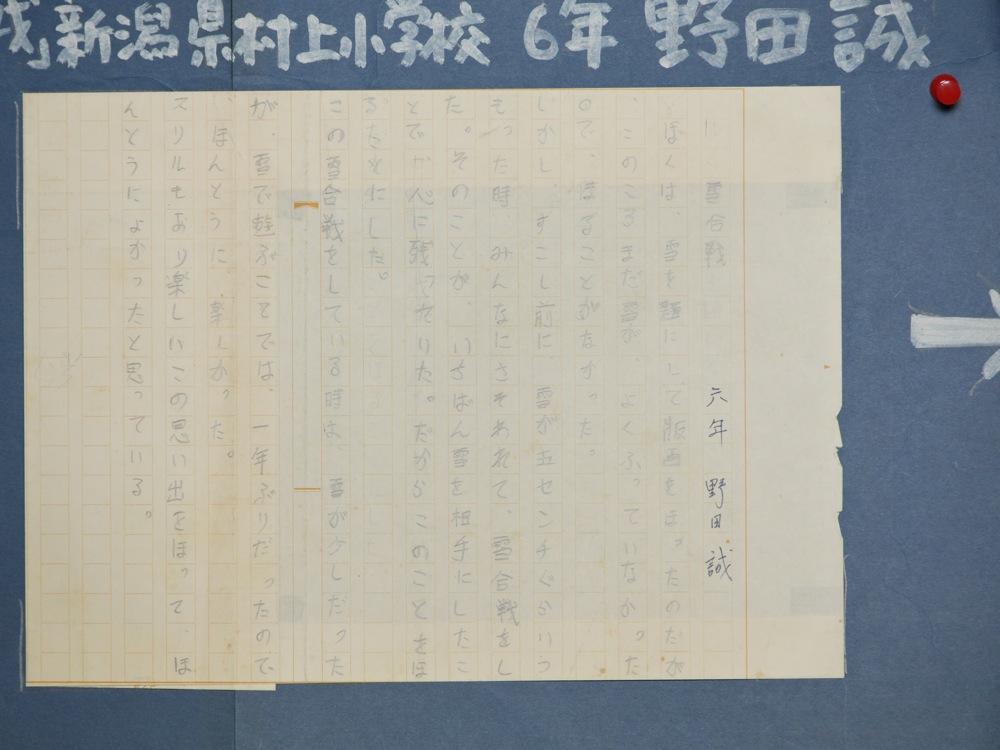 新潟県村上小学校 6年 野田 誠
雪合戦
六年 野田 誠
ぼくは、雪を題にして版画をほったのだが
、このころまだ雪が、よくふっていなかった
ので、ほることがなかった。
しかし、すこし前に、雪が五センチぐらいつ
もった時、みんなにさそわれて、雪合戦をし
た。そのことが、いちばん雪を相手にしたこ
とで心に残った。だからこのことをほ
ることにした。
この雪合戦をしている時は、雪が少しだった
が、雪で遊ぶことでは、一年ぶりだったので
、ほんとうに楽しかった。
スリルもあり楽しいこの思い出をほって、ほ
んとうによかったと思っている。